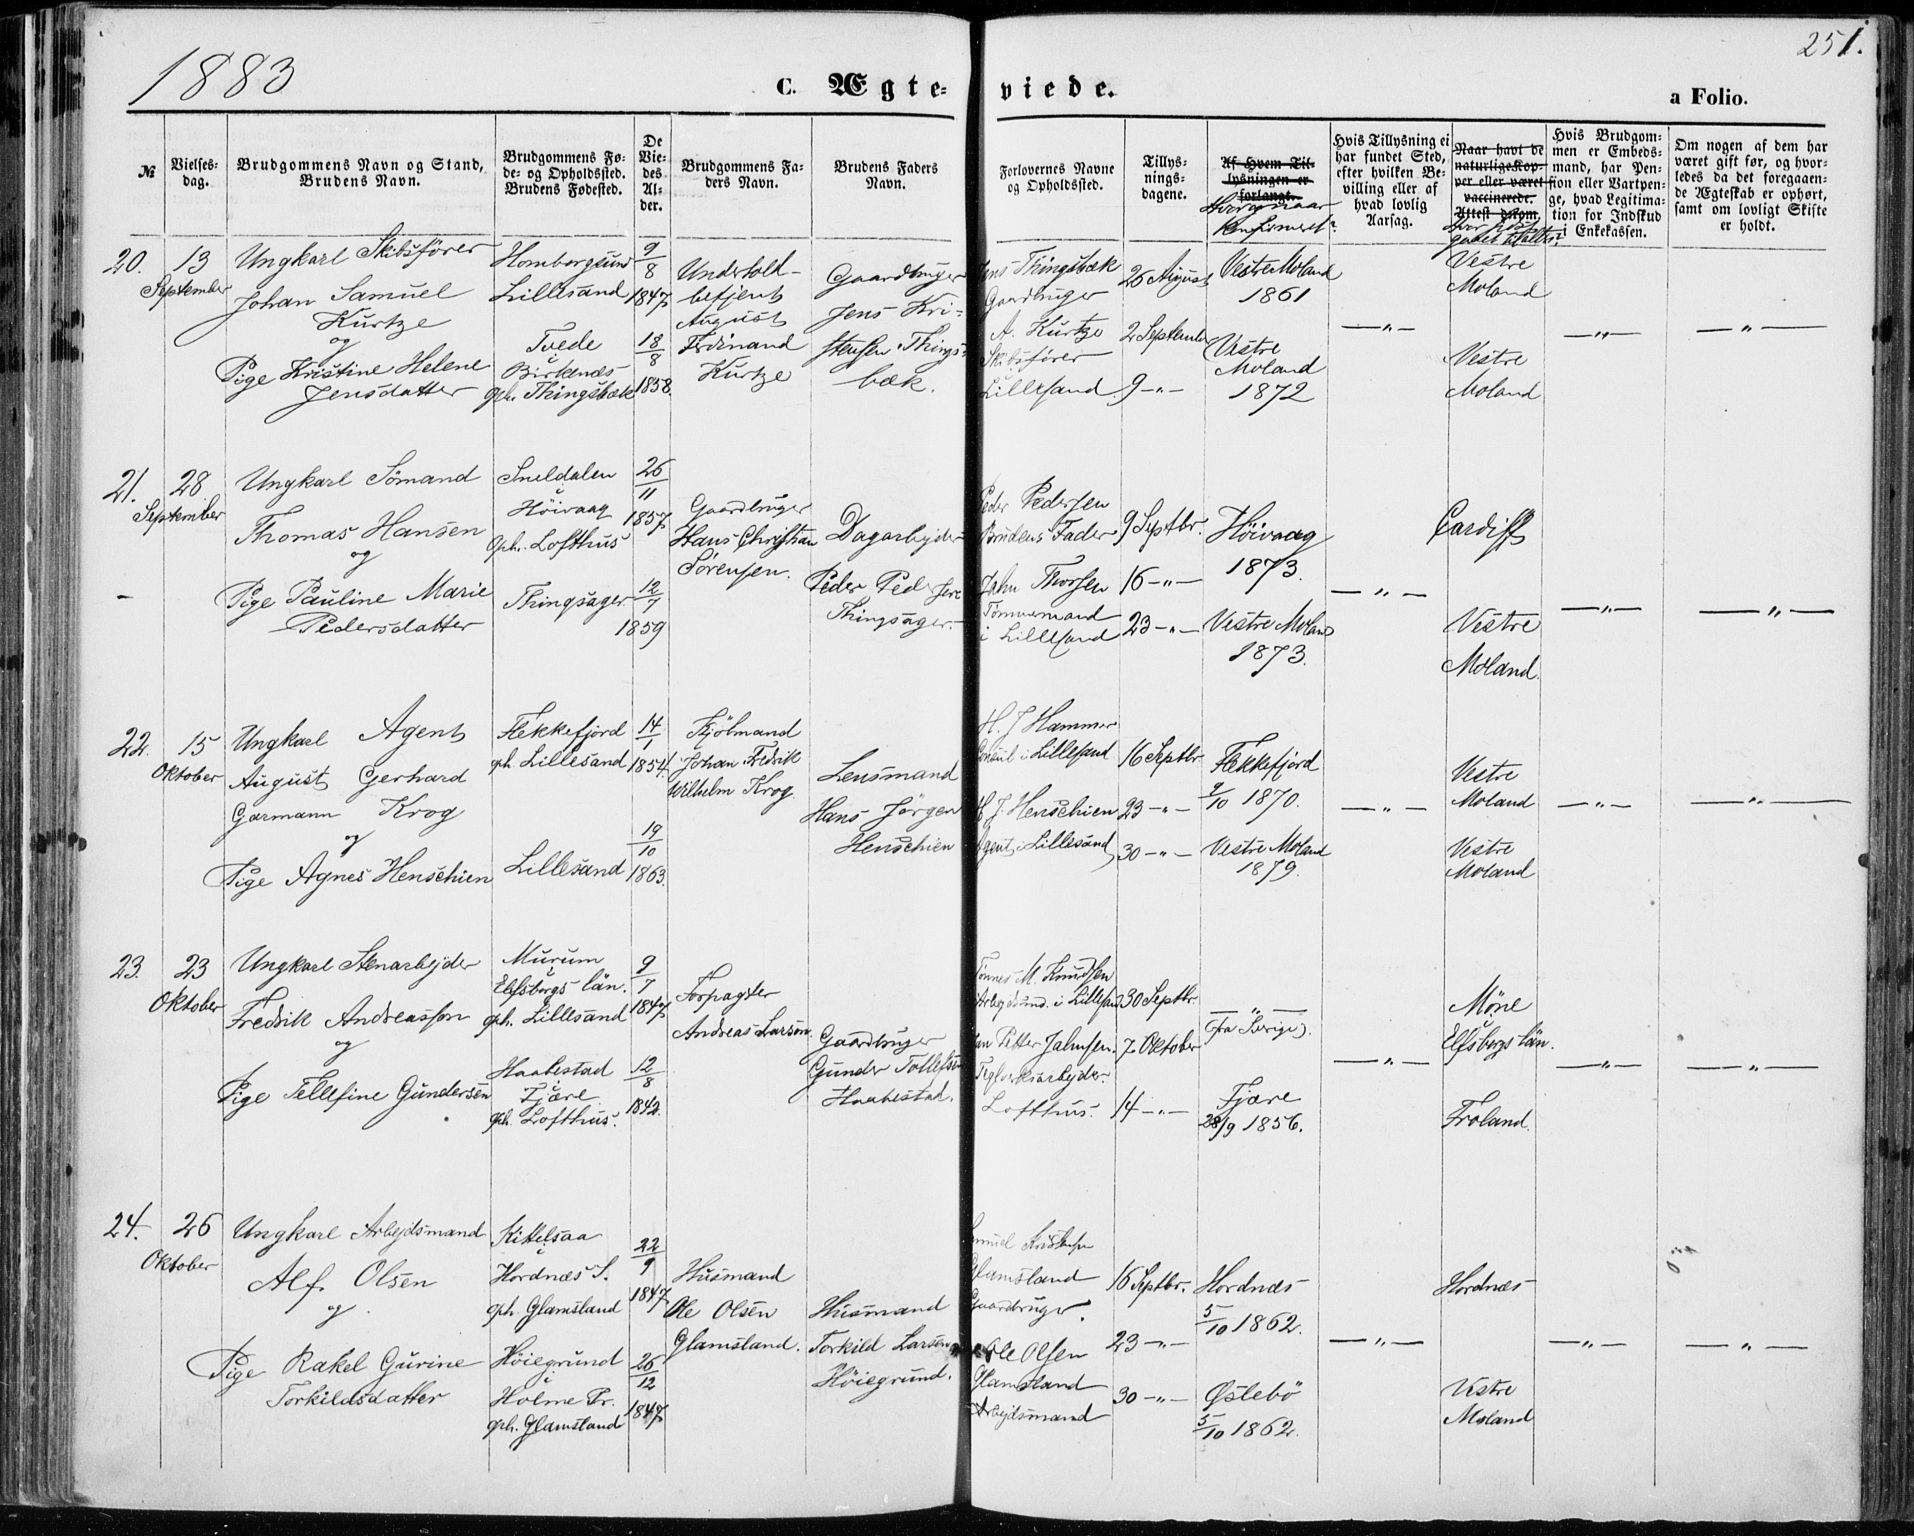 1883
251.
C. Ægte=
viede.
a Folio.
№
Vielses-
dag.
Brudgommens Navn og Stand,
Brudens Navn.
Brudgommens Fø-
de- og Opholdssted.
Brudens Fødested.
De
Vie-
des
Al-
der.
Brudgommens Fa-
ders Navn.
Brudens Faders
Navn.
Forlovernes Navne
og Opholdssted.
Tillys-
nings-
dagene.
Af Hvem Til-
lysningen er
forlangt.
Hvor og naar
Konfirmeret?
Hvis Tillysning ei
har fundet Sted,
efter hvilken Be-
villing eller af
hvad lovlig
Aarsag.
Naar havt de
naturlige Kop-
per eller været
vaccinerede.
Attest derom.
Hvis Brudgom-
men er Embeds-
mand, har Pen-
sion eller Vartpen-
ge, hvad Legitima-
tion for Indskud
i Enkekassen.
Om nogen af dem har
været gift før, og hvor-
ledes da det foregaaen-
de Ægteskab er ophørt,
samt om lovligt Skifte
er holdt.
20.
13
September
Ungkarl Skibsfører
Johan Samuel
Kurtze
og
Pige Kristine Helene
Jensdatter
Homborgsund
Lillesand
Tvede
i
Birkenæs
oph. Thingsbæk
9
8
1847
18
8
1858.
Underfold-
betjent
August
Ferdinand
Kurtze
Gaardbruger
Jens Kri-
stensen Things-
bæk.
Jens Thingsbæk
Gaardbruger
A. Kurtze
Skibsfører
Lillesand
26 August
2 September
9 -"-
Vestre Moland
1861
Vestre
Moland
1872
-"-
Vestre
Moland
Vestre
Moland
-"-
-"-
21.
28
September
Ungkarl Sømand
Thomas Hansen
og
Pige Pauline Marie
Pedersdatter
Sneldalen
i
Höivaag
Oph. Lofthus
Thingsager
26
11
1857
12
7
1859
Gaardbruger
Hans Christian
Sørensen.
Dagarbejder
Peder Pedersen
Thingsager.
Peder Pedersen
Brudens Fader
Jahn Thorsen
Tømmermand
i Lillesand
9 Septbr.
16 -"-
23 -"-
Höivaag
1873.
Vestre Moland
1873.
-"-
Cardiff
Vestre
Moland.
-"-
-"-
22.
15
Oktober
Ungkarl Agent
August Gerhard
Garmann Krog
og
Pige Agnes Henschien
Flekkefjord
oph. Lillesand
Lillesand
14
1
1854
19
10
1863.
Kjöbmand
Johan Fredrik
Wilhelm Krog.
Lensmand
Hans Jörgen
Henschien
H. J. Hammer
Consul i Lillesand
H J. Henschien
Agent i Lillesand
16 Septbr.
23 -"-
30 -"-
Flekkefjord
9/10 1870.
Vestre Moland
1879.
-"-
Vestre
Moland
Vestre
Moland
-"-
-"-
23.
23
Oktober
Ungkarl Stenarbejder
Fredrik Andreasson
og
Pige Tellefine Gundersen
Murum
i
Elfsborgs län.
oph. Lillesand
Haabestad
i
Fjære
oph. Lofthus.
9
7
1847
12
8
1842.
Forpagter
Andreas Larson
Gaardbruger
Gunder Tollefsen
Haabestad.
Tönnes M. Knudsen
Arbejdsmd. i Lillesand
Jan Petter Jahnsen.
Teglverksarbejder
Lofthus.
30 Septbr.
7 Oktober
14 -"-
-"-
(fra Sverige).
Fjære
28/9 1856.
-"-
Möne
i
Elfsborgs län.
Froland.
-"-
-"-
24.
26
Oktober
Ungkarl Arbejdsmand
Alf. Olsen
og
Pige Rakel Gurine
Torkildsdatter
Kittelsaa
i
Hordnæs S.
oph. Glamsland
Höiegrund
i
Holme Pr.
oph. Glamsland
22
9
1847
26
12
1847
Husmand
Ole Olsen
Glamsland.
Husmand
Torkild Larsen
Höiegrund.
Glamsland
Gaardbruger.
Ole Olsen
Glamsland
Arbejdsmand
16 Septbr.
23 -"-
30 -"-
Hordnæs
5/10 1862.
Øslebö
5/10 1862.
-"-
Hordnæs
Vestre
Moland
-"-
-"-